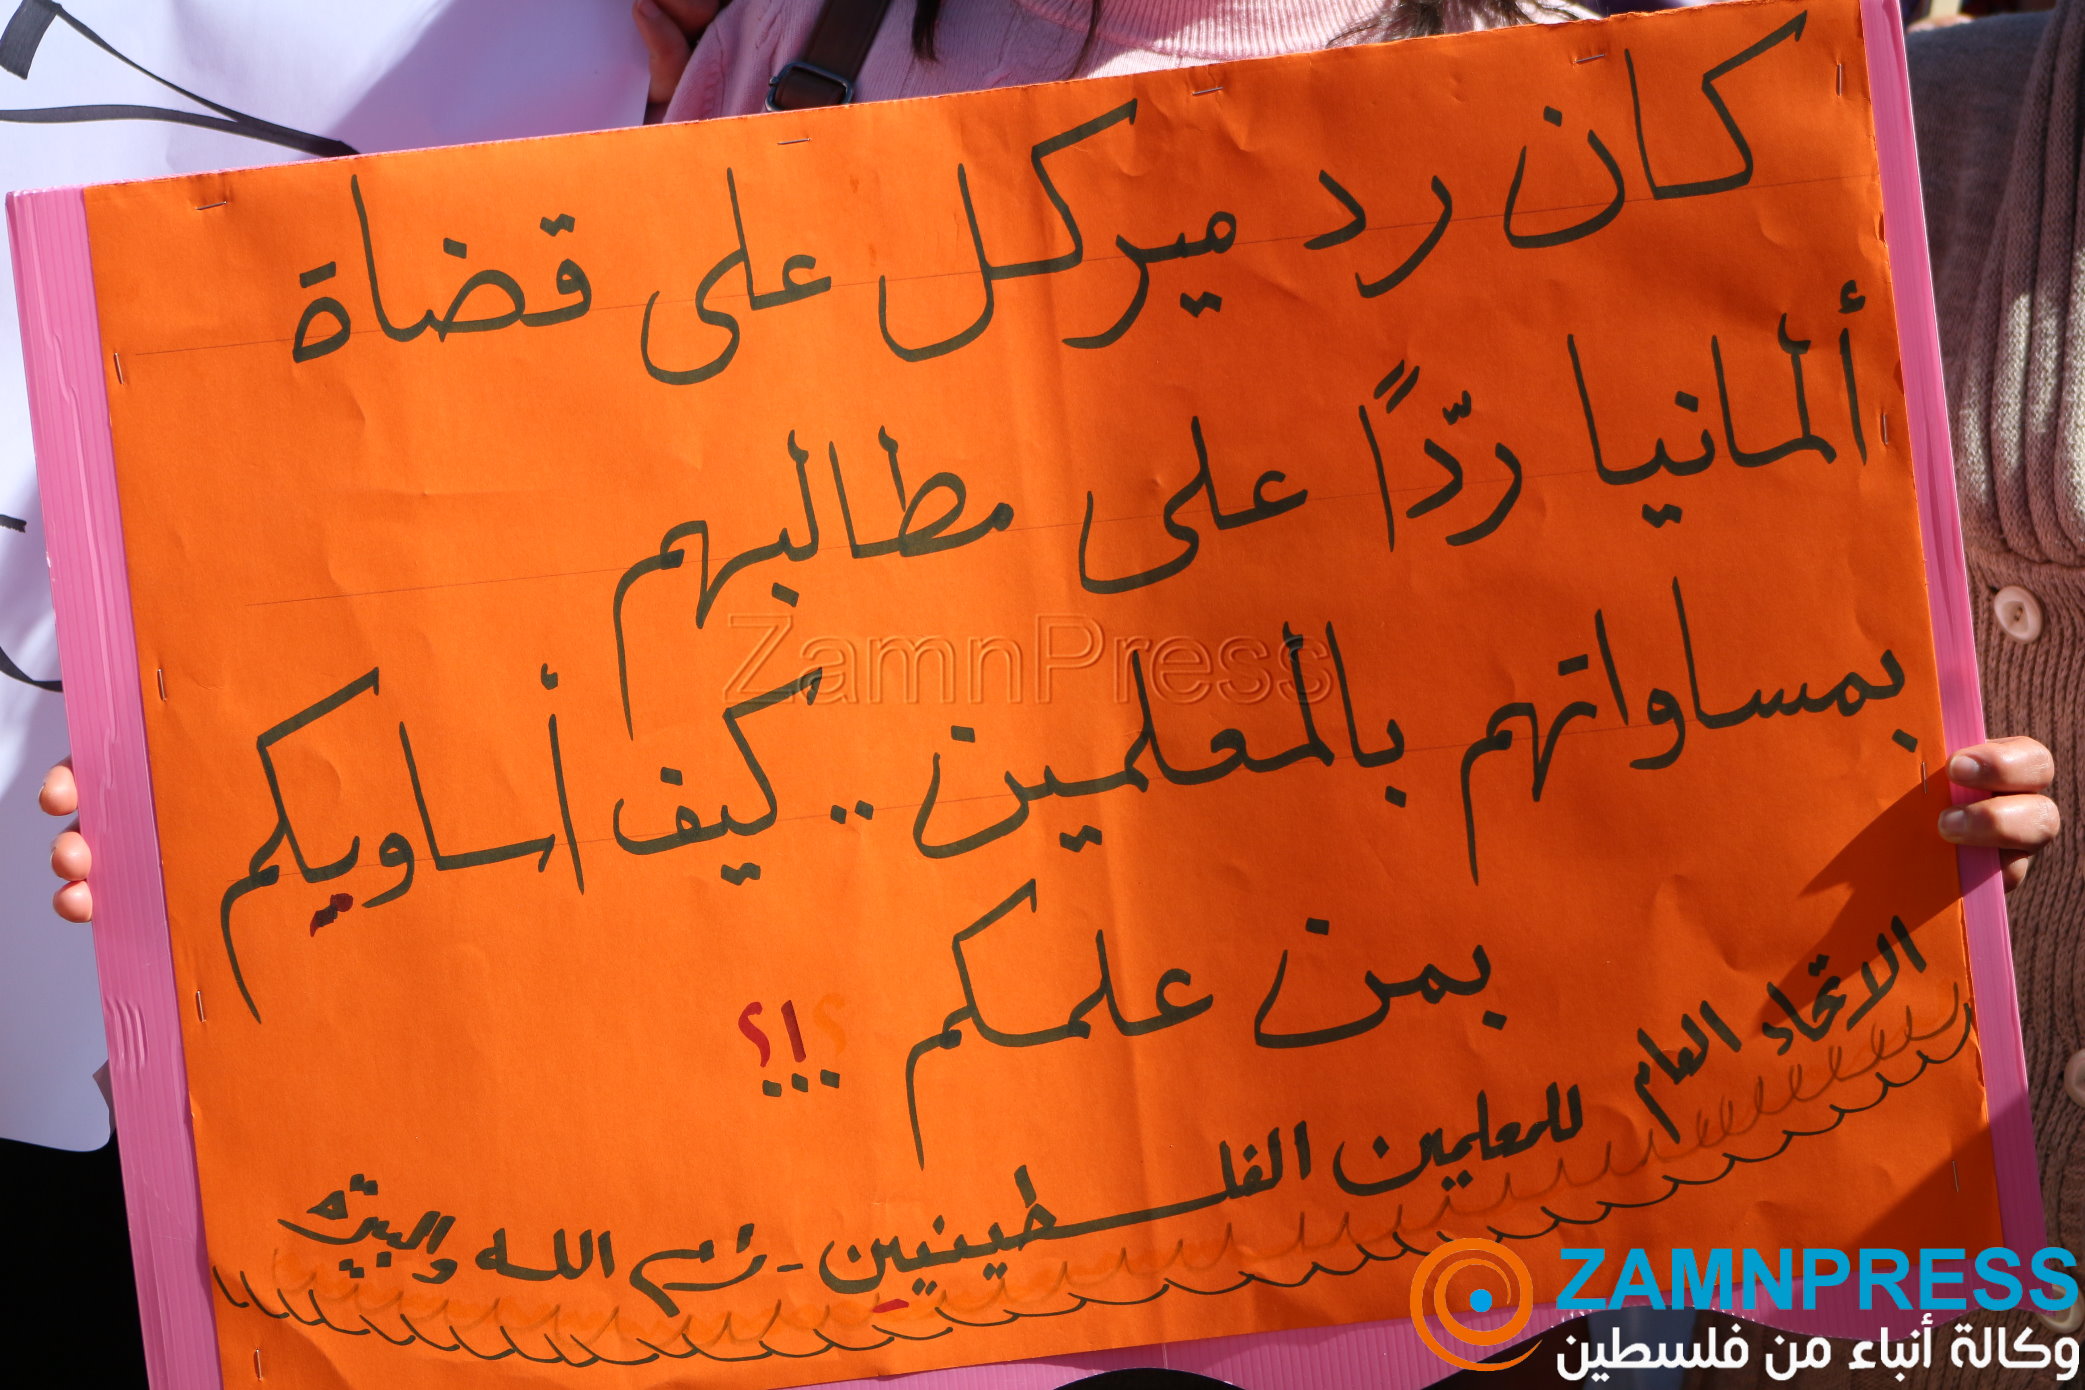 كان رد ميركل على قضاة
ألمانيا ردّاً على مطالبهم
بمساواتهم بالمعلمين .. كيف أساويكم
بمن علمكم ؟!؟
الاتحاد العام للمعلمين الفلسطينيين - رام الله والبيرة
ZamnPress
ZAMNPRESS
وكالة أنباء من فلسطين